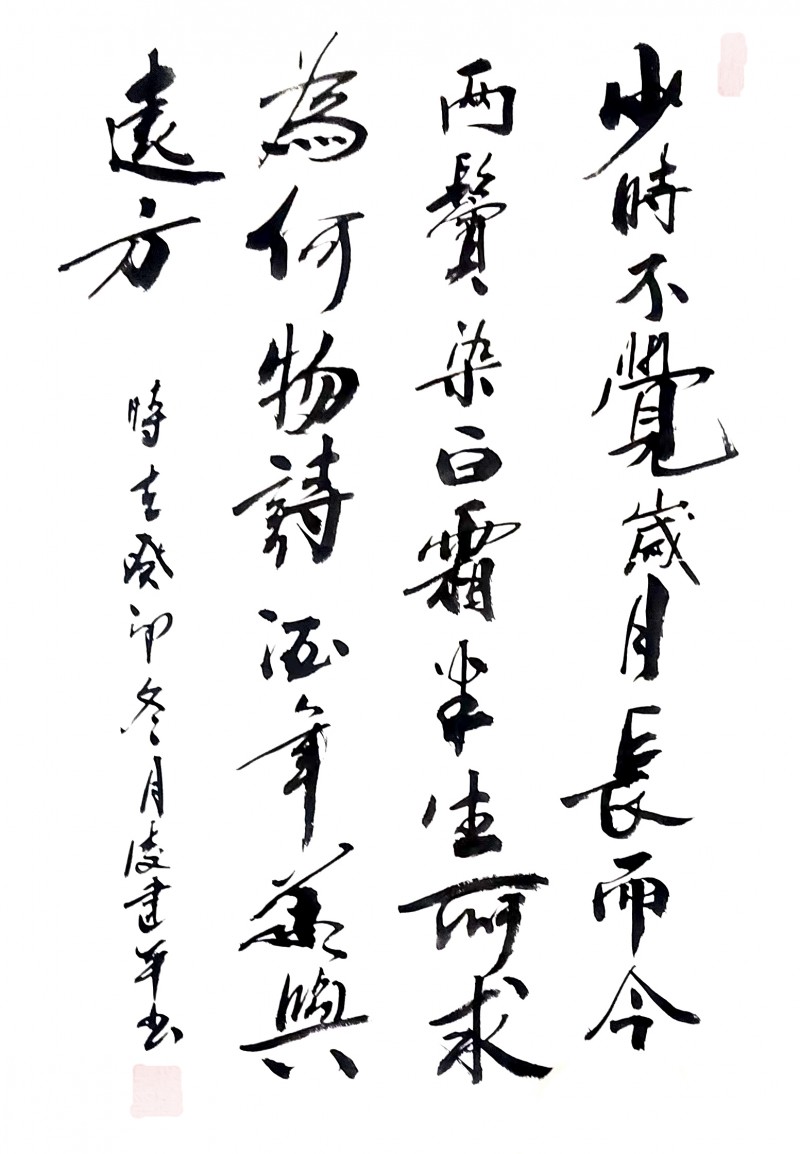 少時不覺歲月長而今
兩鬢染白霜半生所求
為何物詩酒年華與
遠方
時在癸卯冬月凌建平书